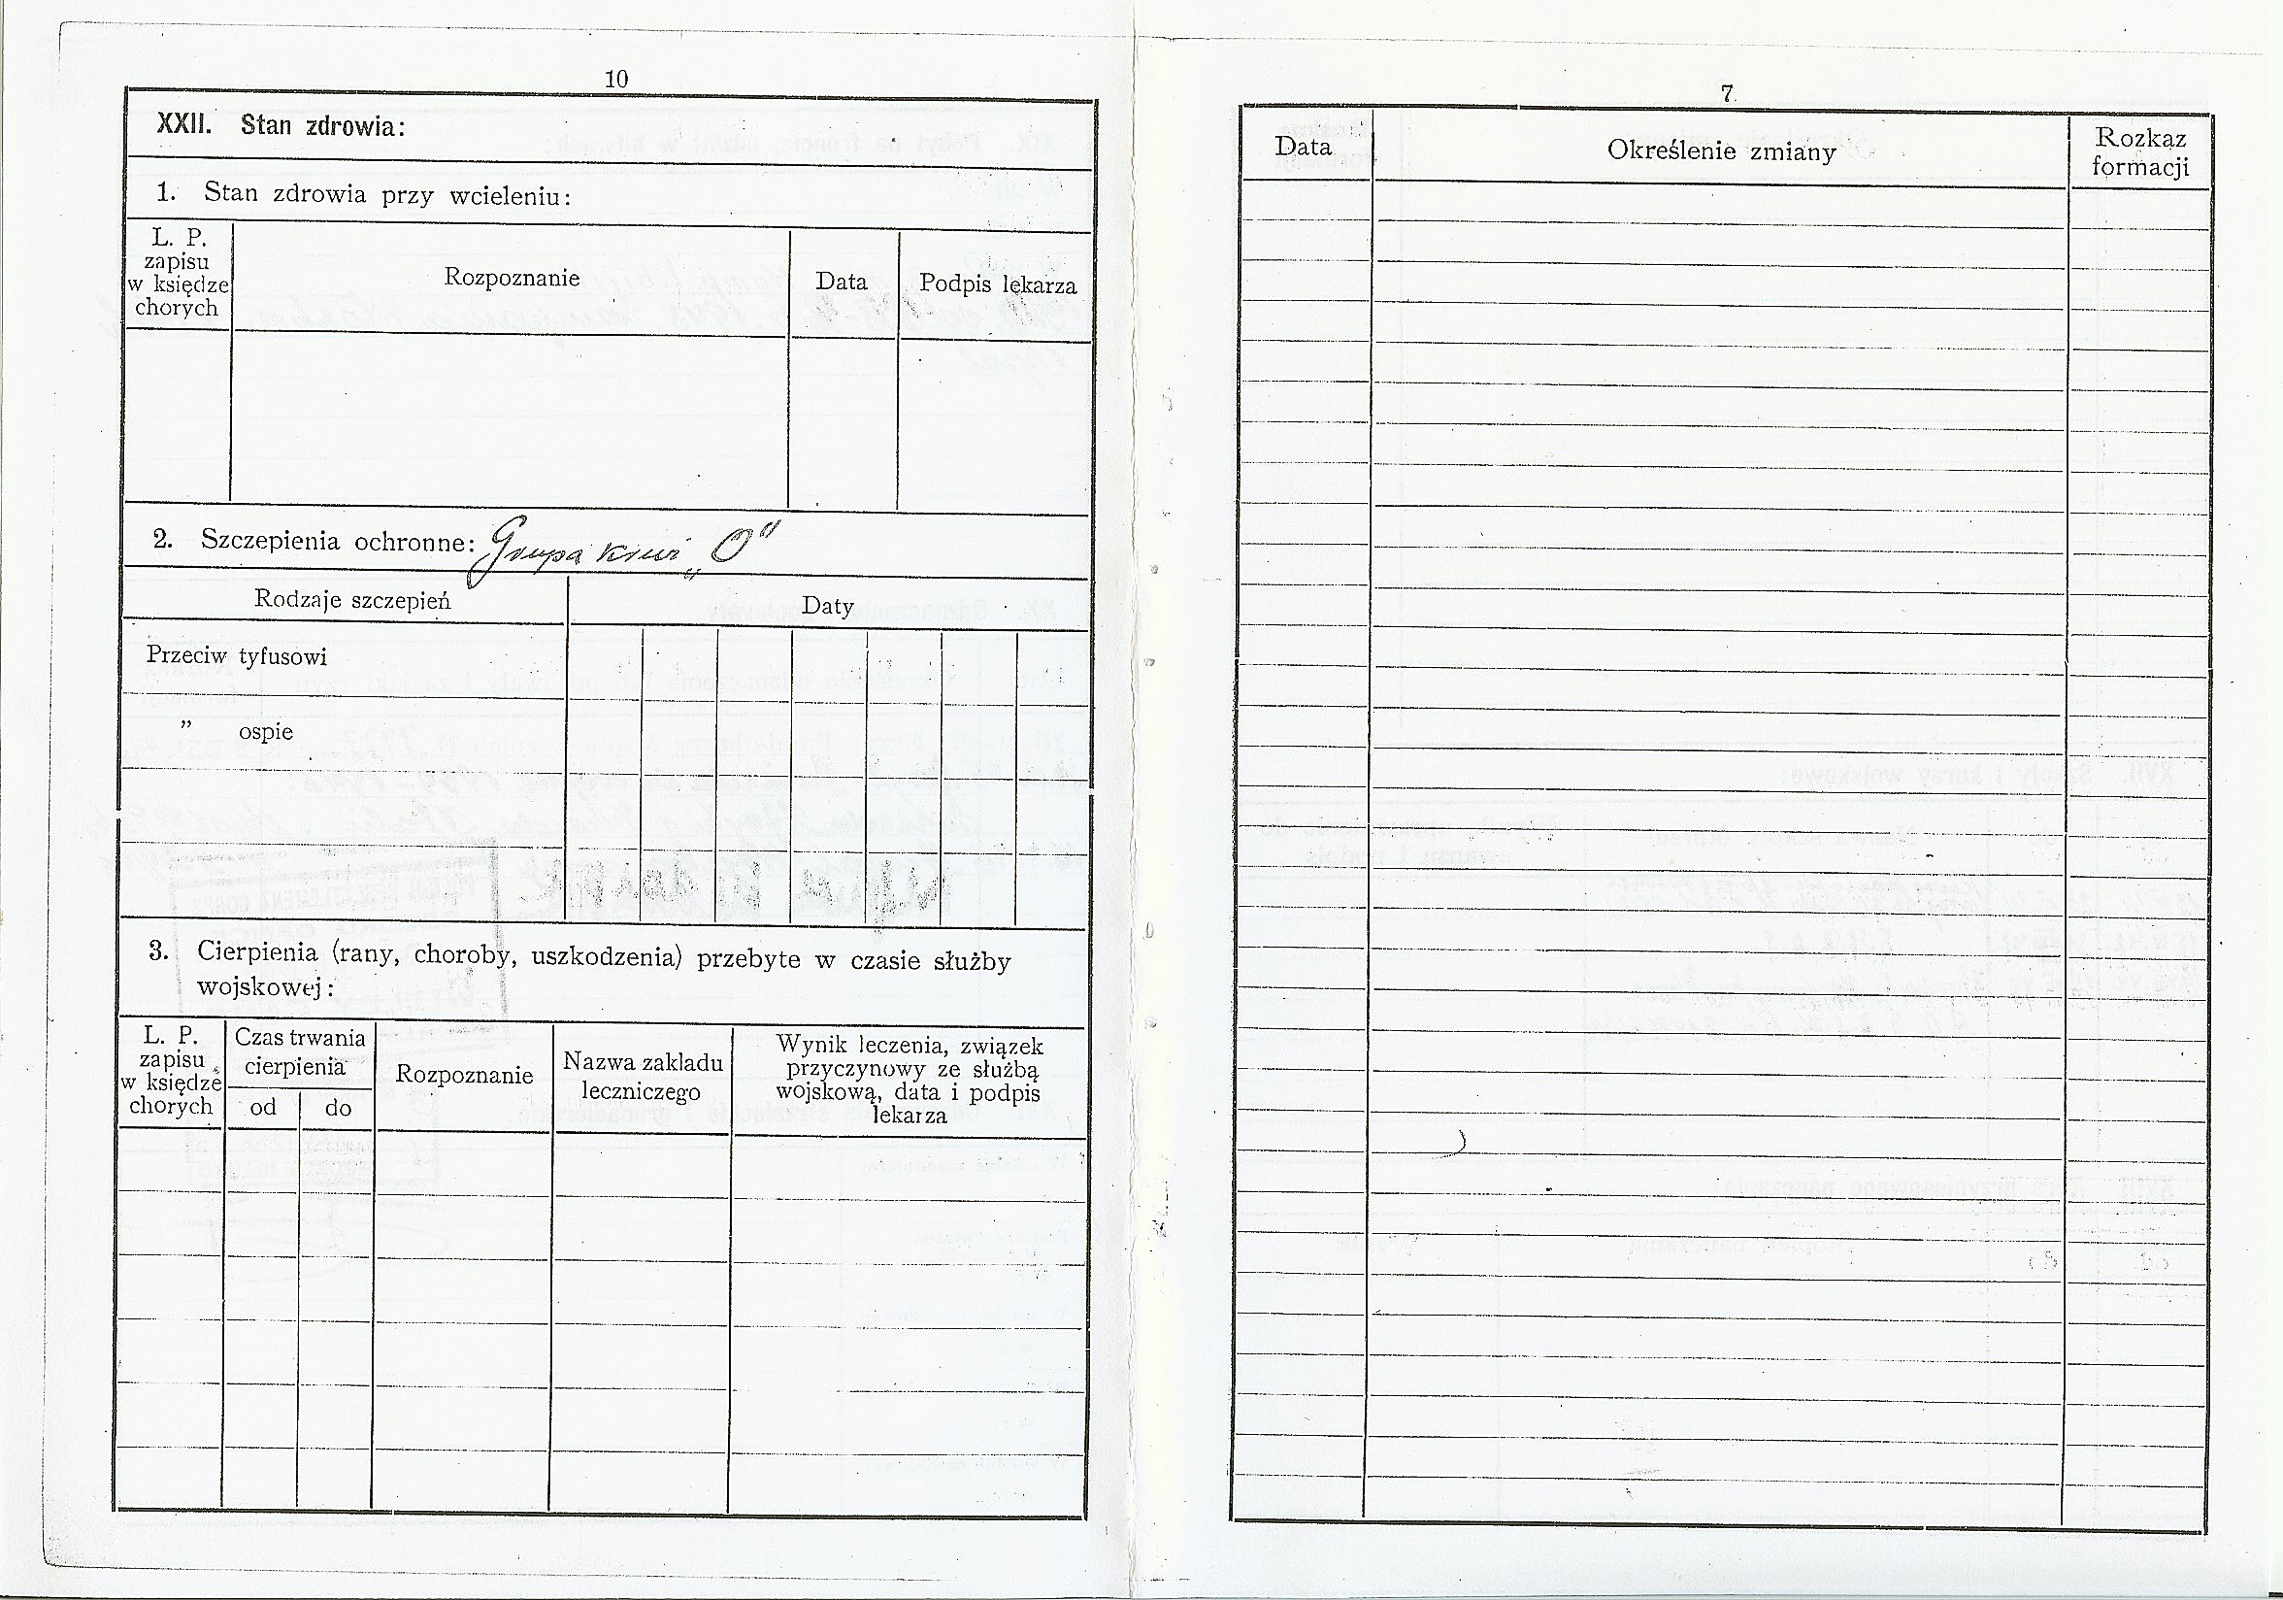 10
XXII. Stan zdrowia:
1. Stan zdrowia przy wcieleniu:
L. P.
zapisu
w księdze
chorych
Rozpoznanie
Data
Podpis lekarza
2. Szczepienia ochronne: Grupa krwi „O"
Rodzaje szczepień
Daty
Przeciw tyfusowi
" ospie
3. Cierpienia (rany, choroby, uszkodzenia) przebyte w czasie służby
wojskowej:
L. P.
zapisu
w księdze
chorych
Czas trwania
cierpienia
od
do
Rozpoznanie
Nazwa zakladu
leczniczego
Wynik leczenia, związek
przyczynowy ze służbą
wojskową, data i podpis
lekarza
7
Data
Określenie zmiany
Rozkaz
formacji